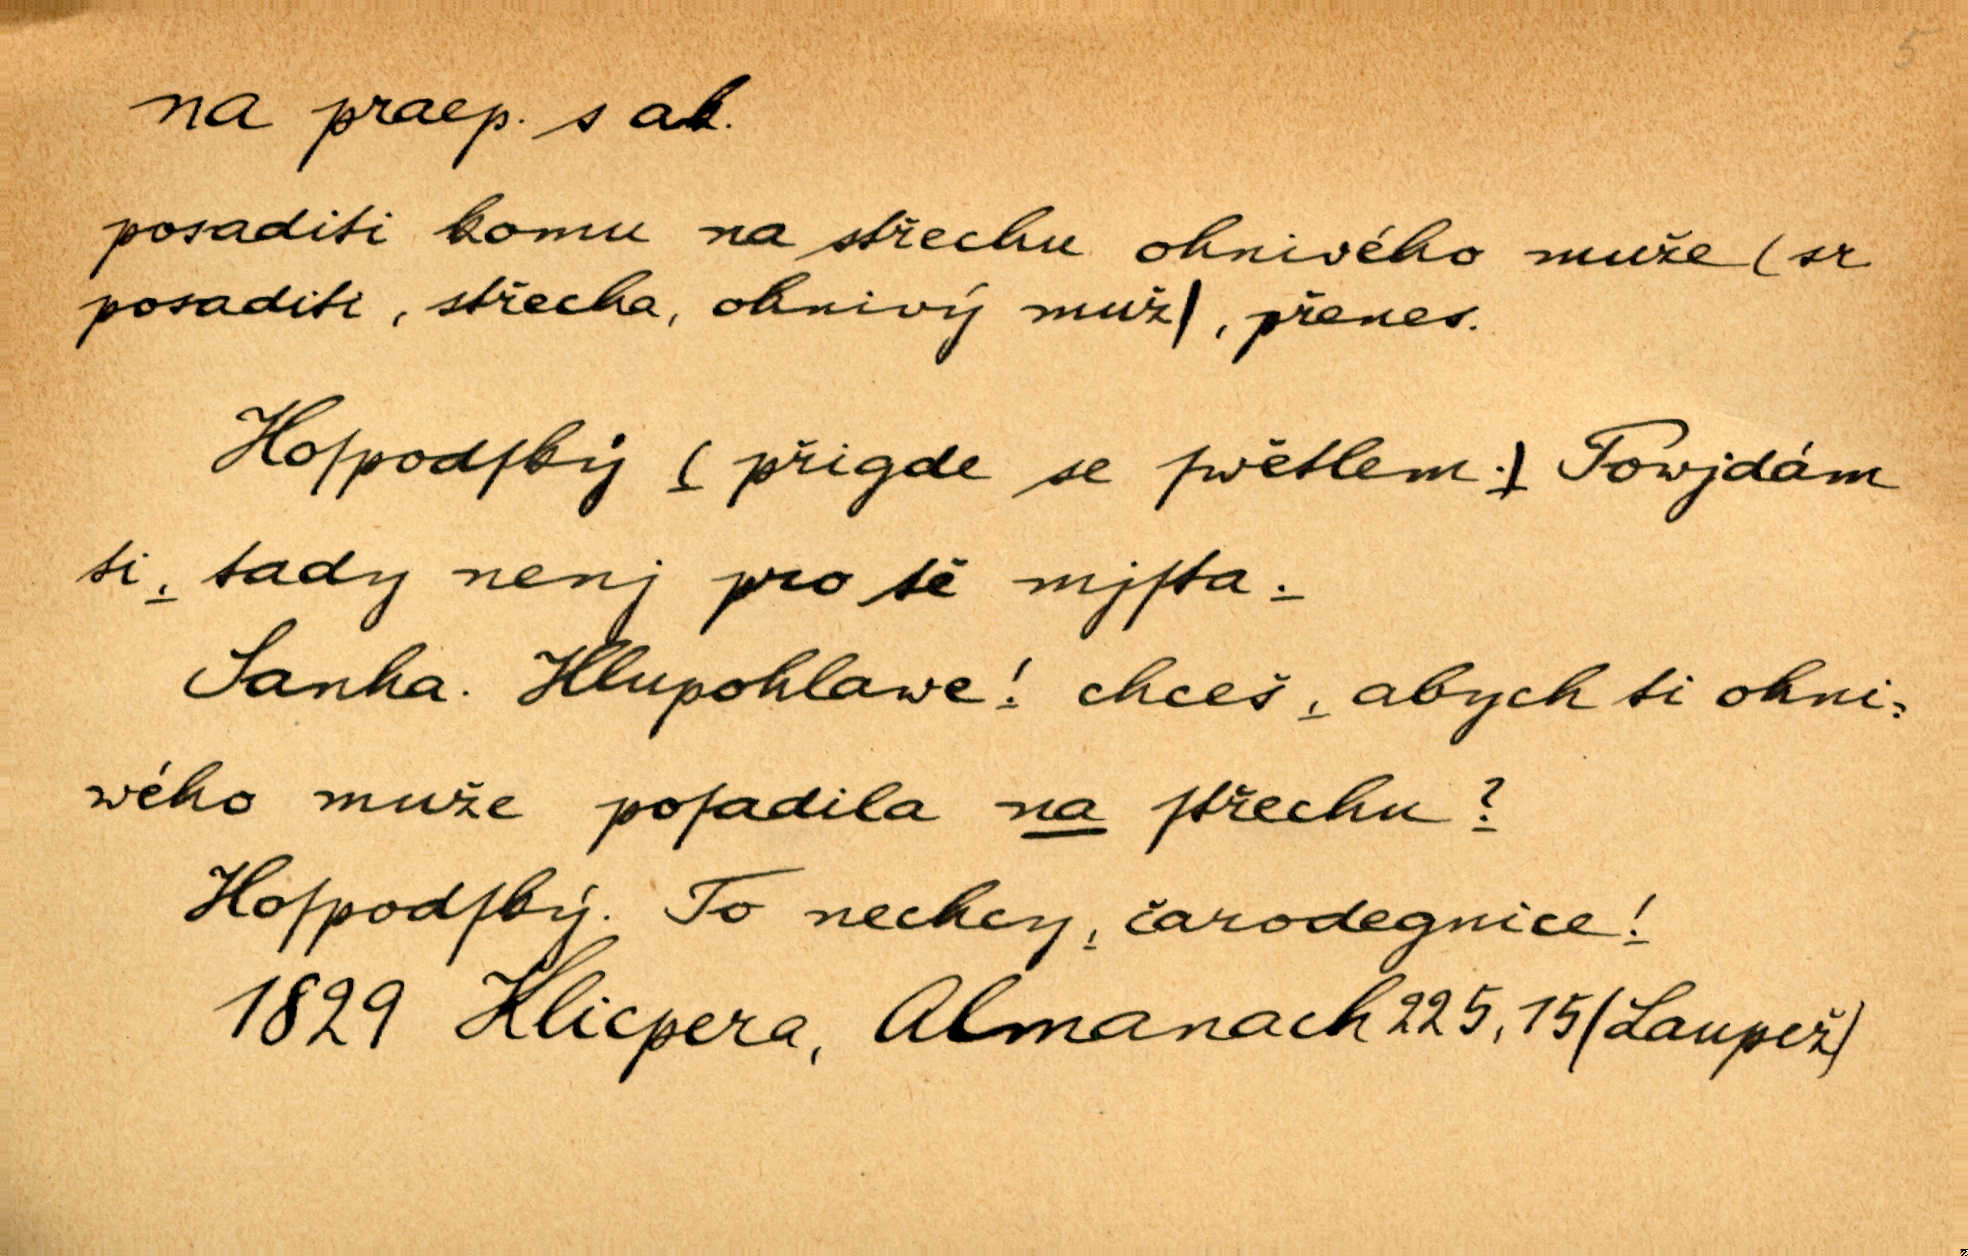 5
na praep. s ak.
posaditi komu na střechu ohnivého muže (sr
posaditi, střecha, ohnivý muž), přenes.
Hoſpodſký (přigde se ſwětlem.) Powjdám
ti, tady nenj pro tě mjſta.
Sanha. Hlupohlawe! chceš, abych ti ohni-
wého muže poſadila na ſtřechu?
Hoſpodſký. To nechcy, čarodegnice!
1829 Klicpera, Almanach 225, 15 (Laupež)